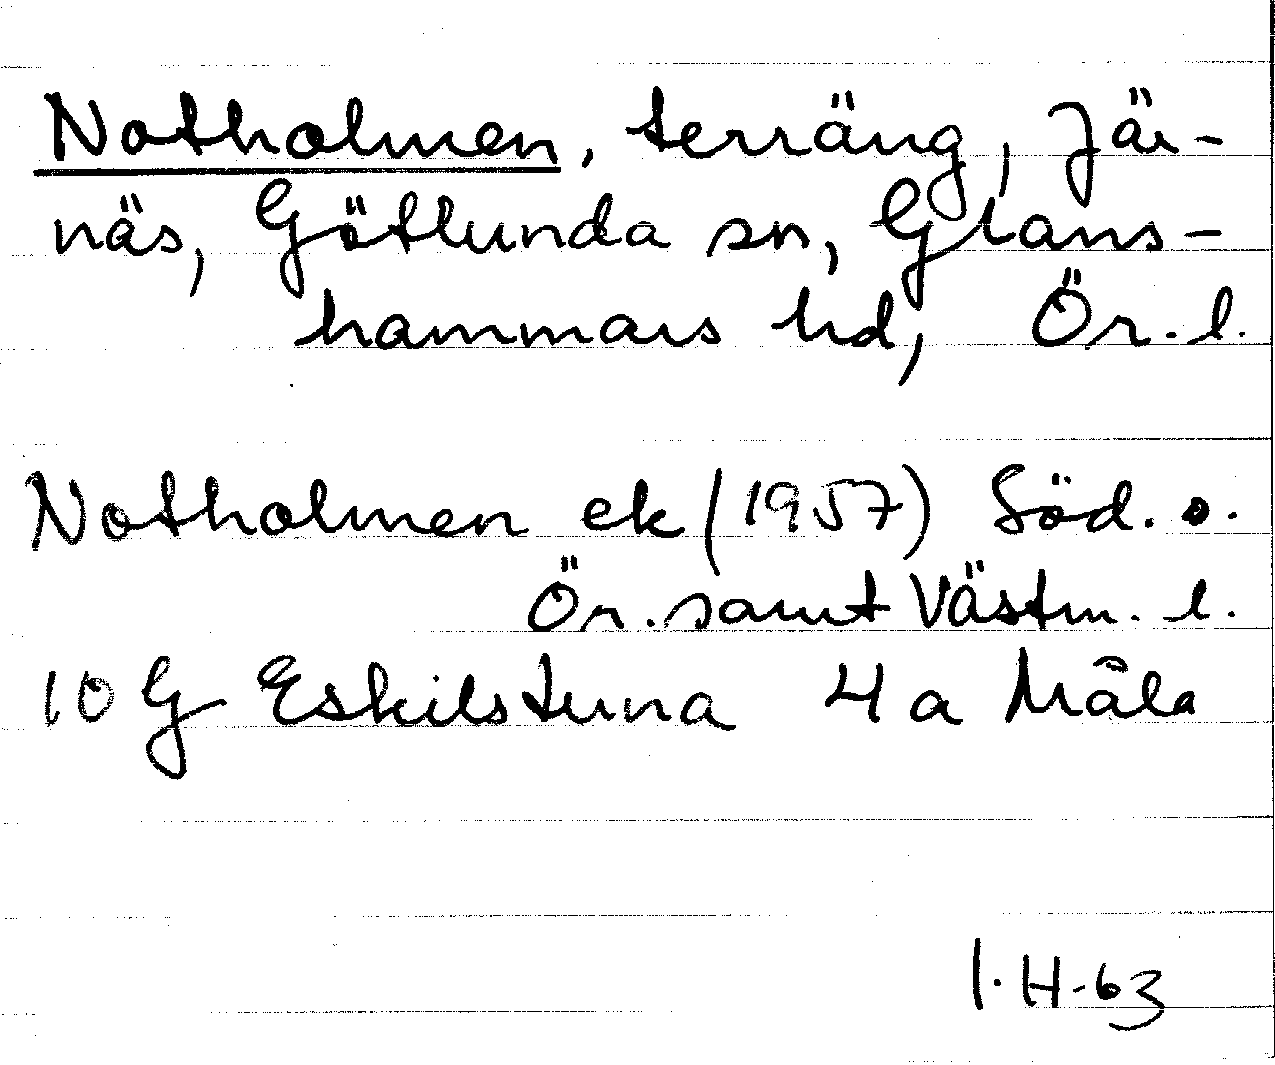 Notholmen, terräng, Jär-
näs, Götlunda sn, Glans-
hammars hd, Ör. l.
Notholmen ek (1957) Söd. o.
Ör. samt Västm. l.
10 G Eskilstuna 4 a Mäla
I. H-63